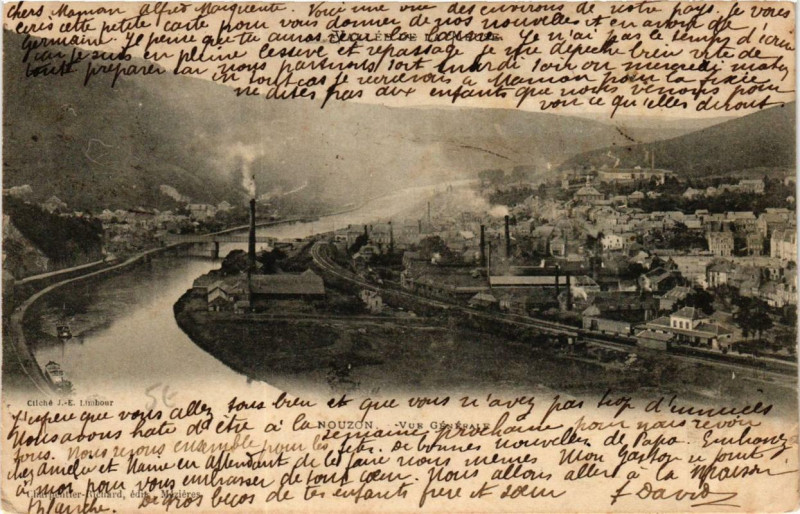 chers Maman Alfred Marguerite. Voici une vue des environs de notre pays. Je vous
écris cette petite carte pour vous donner de nos nouvelles et en avoir de
Germaine. Je pense que tu auras reçu Je n'ai pas le temps d'écrire
VALLÉE DE LA MEUSE
car je suis en pleine lessive et repassage je me dépêche bien vite de
tout préparer car nous partirons soit mardi soir ou mercredi
en tout cas je recevrais a Maman pour la fixée
ne dites pas aux enfants que nous venons pour
voir ce qu'elles diront
Cliché J.-E. Limbour
5€
J'espère que vous allez tous bien et que vous n'avez pas trop d'ennuies
NOUZON. — VUE GÉNÉRALE
Nous avons hate d'être à la semaine prochaine pour nous revoir
tous. Nous ensemble pour les De bonnes nouvelles de Papa. Embrassez
cher et en attendant de le faire nous mêmes Mon Gaston se joint
à moi pour vous embrasser de tout cœur. Nous allons aller à la maison
Charpentier-Richard, édit., Mézières
blanche. De gros becos de tes enfants frère et sœur J David